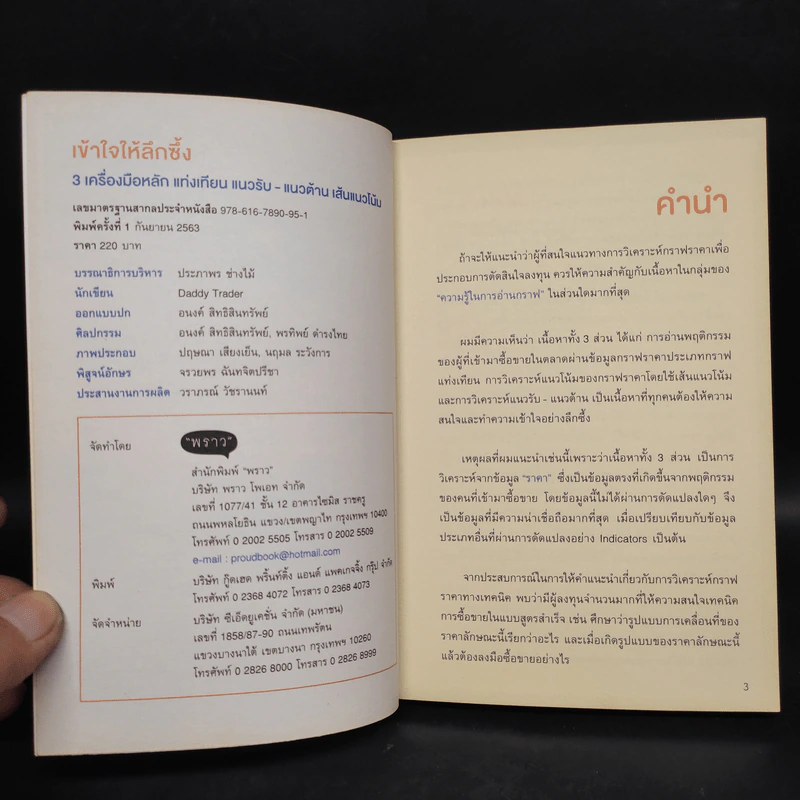 เข้าใจให้ลึกซึ้ง
3 เครื่องมือหลัก แท่งเทียน แนวรับ - แนวต้าน เส้นแนวโน้ม
เลขมาตรฐานสากลประจำหนังสือ 978-616-7890-95-1
พิมพ์ครั้งที่ 1 กันยายน 2563
ราคา 220 บาท
บรรณาธิการบริหาร ประภาพร ช่างไม้
นักเขียน Daddy Trader
ออกแบบปก อนงค์ สิทธิสินทรัพย์
ศิลปกรรม อนงค์ สิทธิสินทรัพย์, พรทิพย์ ดำรงไทย
ภาพประกอบ ปฤษณา เสียงเย็น, นฤมล ระวังการ
พิสูจน์อักษร จรวยพร ฉันทจิตปรีชา
ประสานงานการผลิต วราภรณ์ วัชรานนท์
จัดทำโดย "พราว"
สำนักพิมพ์ "พราว"
บริษัท พราว โพเอท จำกัด
เลขที่ 1077/41 ชั้น 12 อาคารไซมิส ราชครู
ถนนพหลโยธิน แขวง/เขตพญาไท กรุงเทพฯ 10400
โทรศัพท์ 0 2002 5505 โทรสาร 0 2002 5509
e-mail : proudbook@hotmail.com
พิมพ์ บริษัท กู๊ดเฮด พริ้นท์ติ้ง แอนด์ แพคเกจจิ้ง กรุ๊ป จำกัด
โทรศัพท์ 0 2368 4072 โทรสาร 0 2368 4073
จัดจำหน่าย บริษัท ซีเอ็ดยูเคชั่น จำกัด (มหาชน)
เลขที่ 1858/87-90 ถนนเทพรัตน
แขวงบางนาใต้ เขตบางนา กรุงเทพฯ 10260
โทรศัพท์ 0 2826 8000 โทรสาร 0 2826 8999
คำนำ
ถ้าจะให้แนะนำว่าผู้ที่สนใจแนวทางการวิเคราะห์กราฟราคาเพื่อ
ประกอบการตัดสินใจลงทุน ควรให้ความสำคัญกับเนื้อหาในกลุ่มของ
"ความรู้ในการอ่านกราฟ" ในส่วนใดมากที่สุด
ผมมีความเห็นว่า เนื้อหาทั้ง 3 ส่วน ได้แก่ การอ่านพฤติกรรม
ของผู้ที่เข้ามาซื้อขายในตลาดผ่านข้อมูลกราฟราคาประเภทกราฟ
แท่งเทียน การวิเคราะห์แนวโน้มของกราฟราคาโดยใช้เส้นแนวโน้ม
และการวิเคราะห์แนวรับ - แนวต้าน เป็นเนื้อหาที่ทุกคนต้องให้ความ
สนใจและทำความเข้าใจอย่างลึกซึ้ง
เหตุผลที่ผมแนะนำเช่นนี้เพราะว่าเนื้อหาทั้ง 3 ส่วน เป็นการ
วิเคราะห์จากข้อมูล "ราคา" ซึ่งเป็นข้อมูลตรงที่เกิดขึ้นจากพฤติกรรม
ของคนที่เข้ามาซื้อขาย โดยข้อมูลนี้ไม่ได้ผ่านการดัดแปลงใดๆ จึง
เป็นข้อมูลที่มีความน่าเชื่อถือมากที่สุด เมื่อเปรียบเทียบกับข้อมูล
ประเภทอื่นที่ผ่านการดัดแปลงอย่าง Indicators เป็นต้น
จากประสบการณ์ในการให้คำแนะนำเกี่ยวกับการวิเคราะห์กราฟ
ราคาทางเทคนิค พบว่ามีผู้ลงทุนจำนวนมากที่ให้ความสนใจเทคนิค
การซื้อขายในแบบสูตรสำเร็จ เช่น ศึกษาว่ารูปแบบการเคลื่อนที่ของ
ราคาลักษณะนี้เรียกว่าอะไร และเมื่อเกิดรูปแบบของราคาลักษณะนี้
แล้วต้องลงมือซื้อขายอย่างไร
3